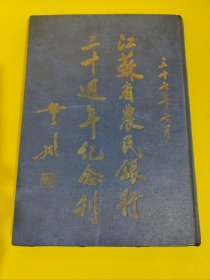 三十七年七月
江蘇省農民銀行
二十週年紀念刊